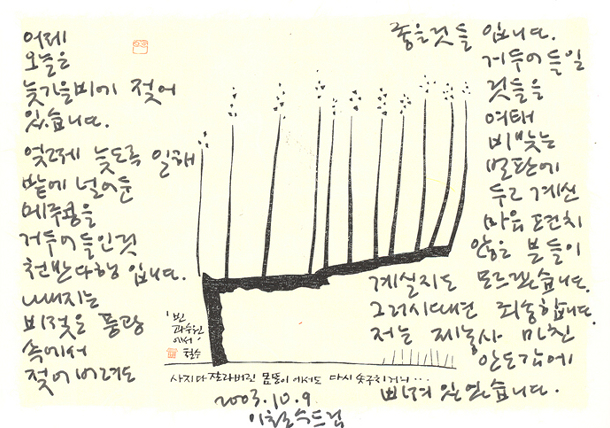 어제
오늘은
늦가을비에 젖어
있습니다.
엊그제 늦도록 일해
밭에 널어둔
메주콩을
거두어 들인것
천만다행 입니다.
나머지는
비젖은 풍광
속에서
젖어 버려도
좋을것들 입니다.
거두어 들일
것들을
여태
비맞는
벌판에
두고 계신
마음 편치
않은 분들이
계실지도 모르겠습니다.
그러시다면 죄송합니다.
저는 제 농사 마친
안도감에
빠져 있었습니다.
'빈
과수원
에서'
철수
사지 다 잘라버린 몸뚱이에서도 다시 솟구치거니...
2003.10.9.
이철수드림